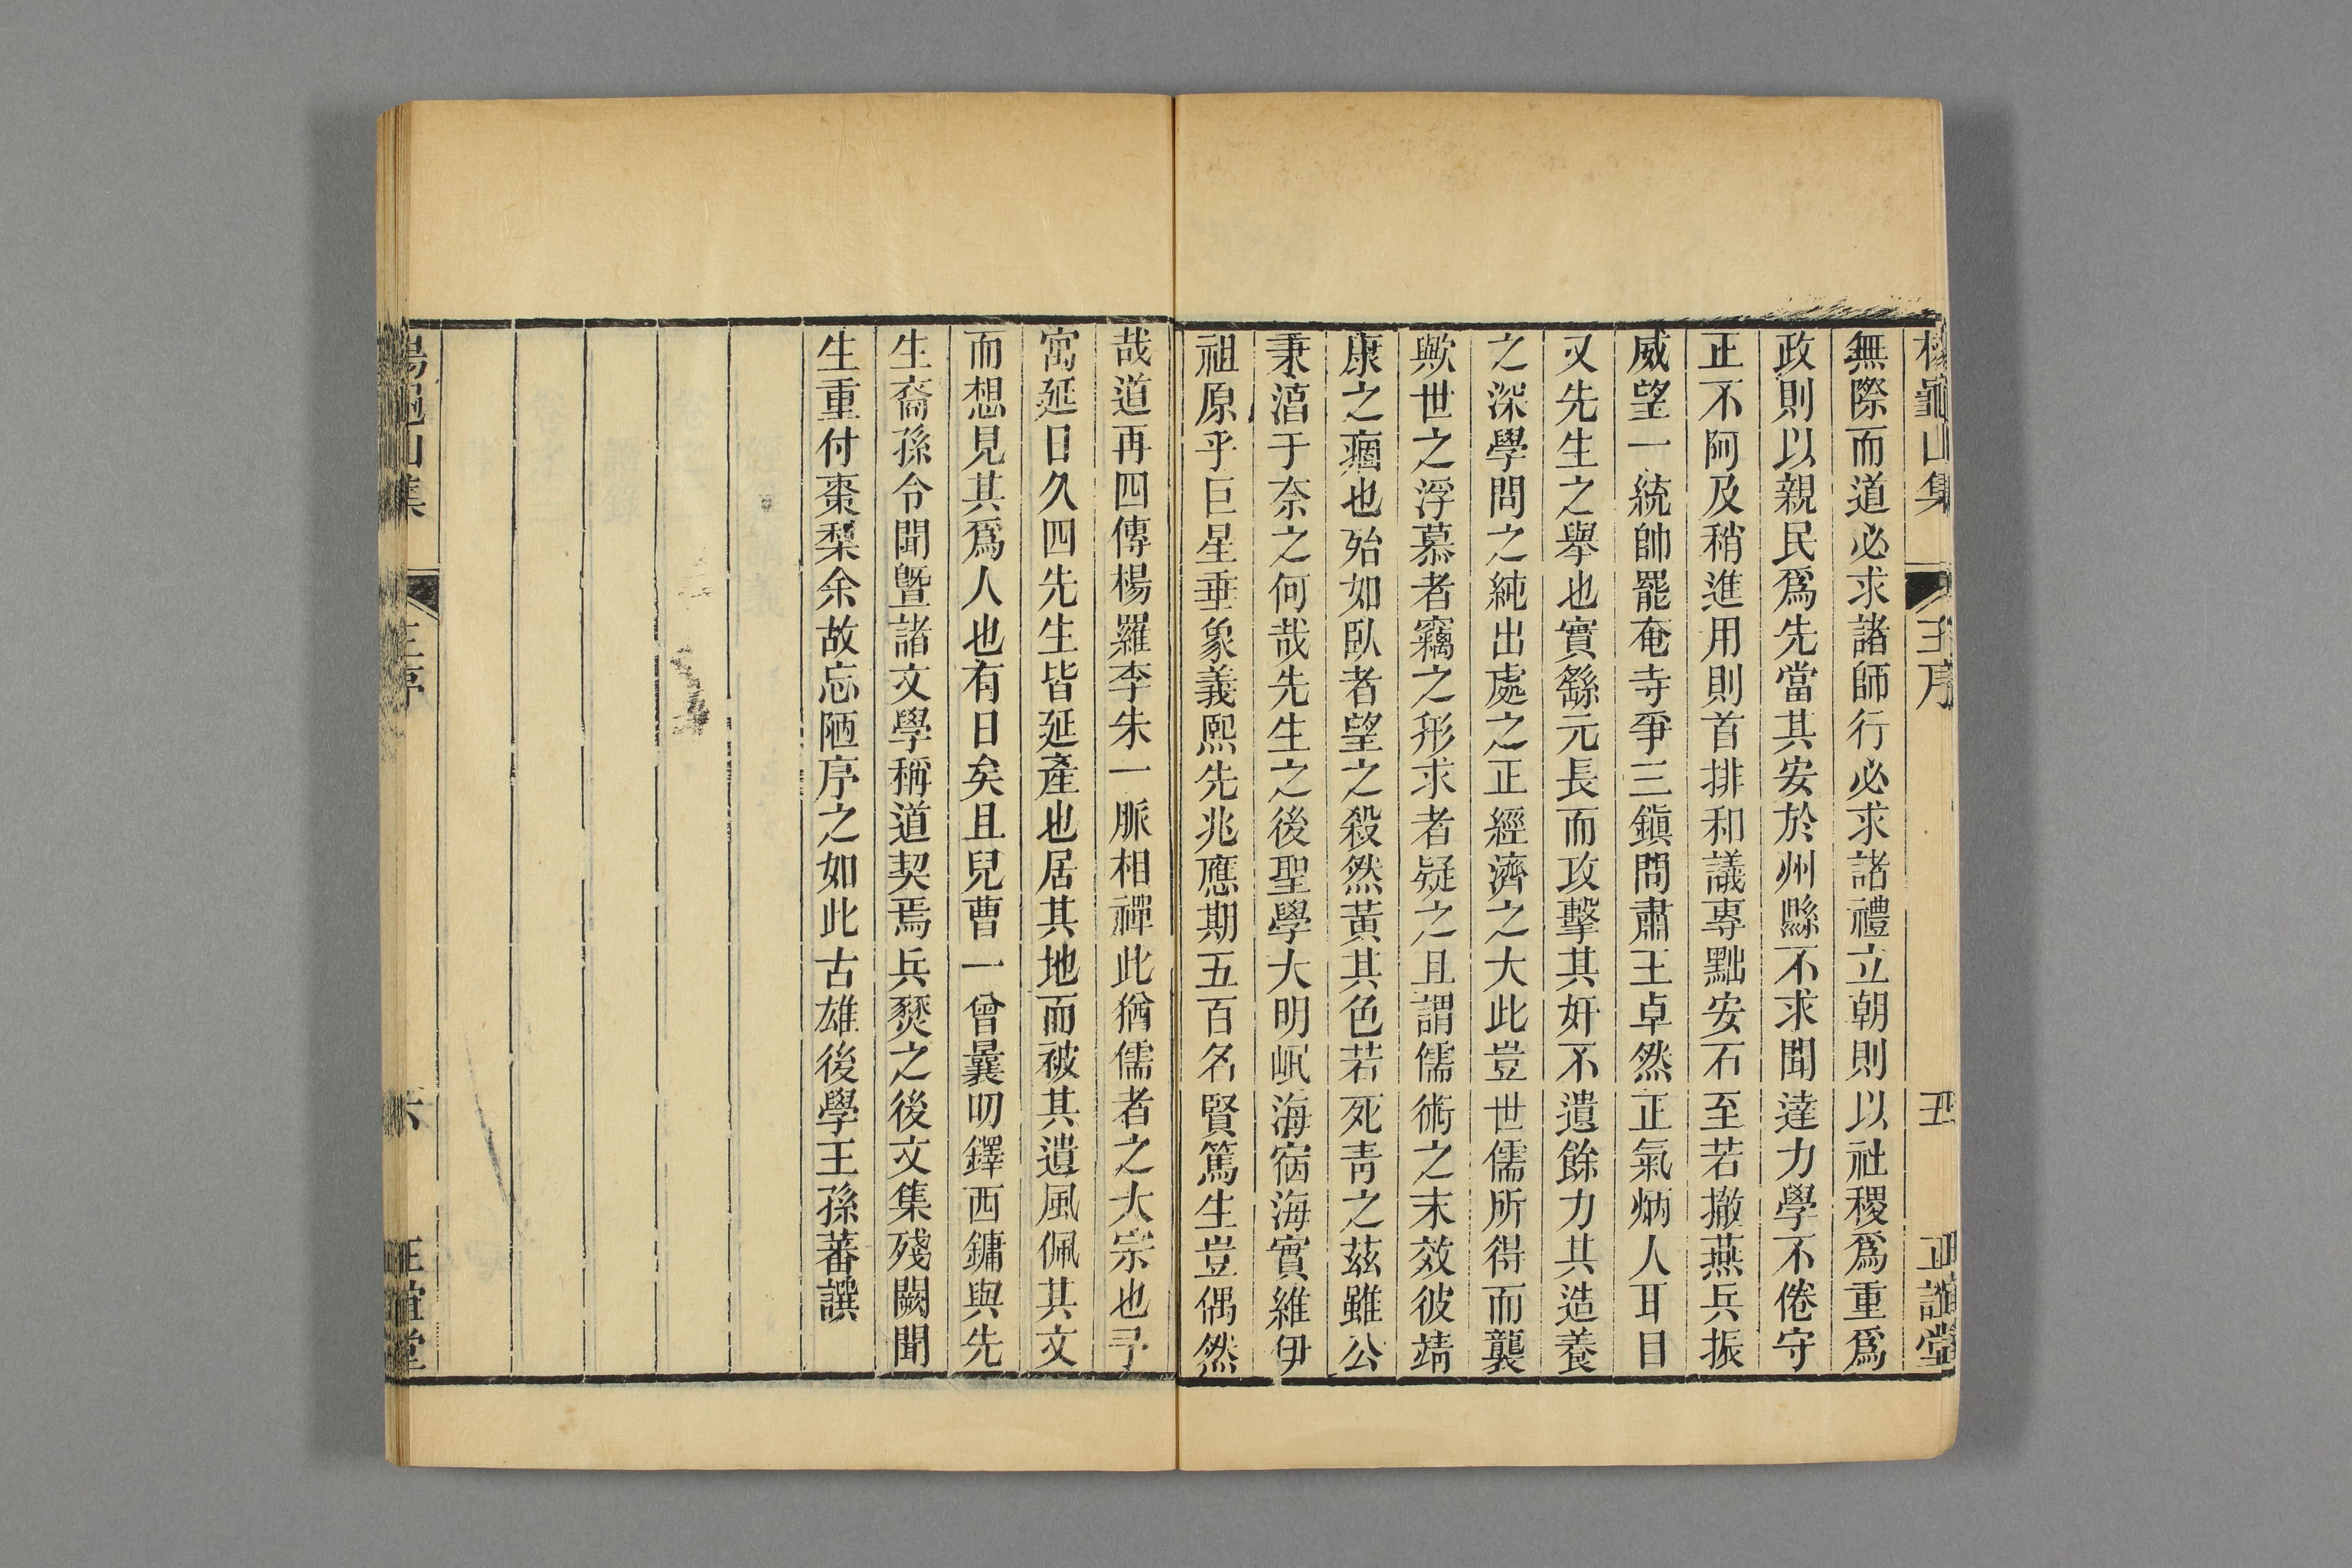 楊龜山集 王序 五 正誼堂
無際而道必求諸師行必求諸禮立朝則以社稷爲重爲
政則以親民爲先當其安於州縣不求聞達力學不倦守
正不阿及稍進用則首排和議專黜安石至若撤燕兵振
威望一統帥罷奄寺爭三鎭問肅王卓然正氣炳人耳目
又先生之舉也實繇元長而攻擊其奸不遺餘力其造養
之深學問之純出處之正經濟之大此豈世儒所得而襲
歟世之浮慕者竊之形求者疑之且謂儒術之末效彼靖
康之痼也殆如臥者望之殺然黃其色若死靑之茲雖公
秉湻于奈之何哉先生之後聖學大明岷海宿海實維伊
祖原乎巨星垂象義熙先兆應期五百名賢篤生豈偶然
哉道再四傳楊羅李朱一脈相禪此猶儒者之大宗也予
寓延日久四先生皆延產也居其地而被其遺風佩其文
而想見其爲人也有日矣且兒曹一曾曩叨鐸西鏞與先
生裔孫令聞曁諸文學稱道契焉兵燹之後文集殘闕聞
生重付棗梨余故忘陋序之如此古雄後學王孫蕃譔
楊龜山集 王序 六 正誼堂